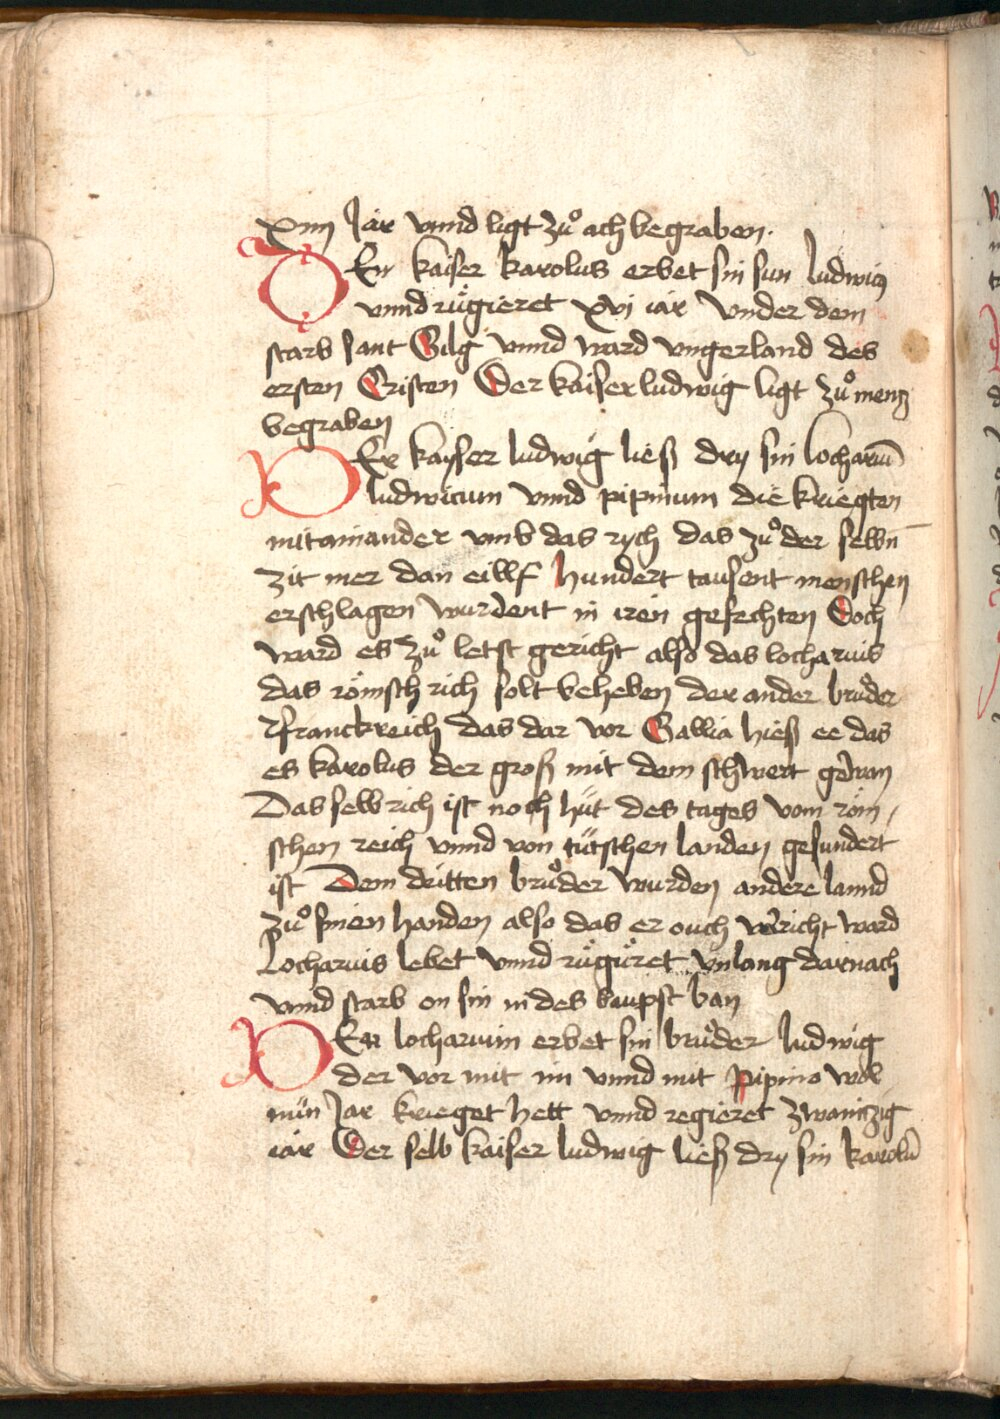 xiiij Jar vnnd ligt zuͦ ach begraben.
DEn kaiser karolus erbet sin sun ludwig
vnnd rügieret xvj iar vnder dem
starb sant Gilg vnnd ward vngerland des
ersten Cristen Der kaiser ludwig ligt zuͦ mentz
begraben
DEr kayser ludwig lies dry sin locharium̄
ludwicum vnnd pipinum die kriegten
mitainander vmb das rych das zuͦ der selbn̄
zit mer dan eilff hundert tausent menschen
erschlagen wurdent in iren gefechten Doch
ward es zuͦ letst gericht also das locharius
das römsch rich solt beheben der ander bruͦder
franckreich das dar vor Gallia hies ee das
es karolus der gros mit dem schwert gewan
Das selb rich ist noch hüt des tages vom röm,
schen reich vnnd von tütschen landen gesundert
ist Dem dritten bruͦder wurden andere lannd
zuͦ sinen handen also das er ouch vericht ward
Locharius lebet vnnd rügieret vnlang darnach
vnnd starb on sin in des baupst ban
DEn locharium erbet sin bruͦder ludwig
der vor mit im vnnd mit pipino wol
nün Jar krieget hett vnnd regieret zwaintzig
iar Der selb kaiser ludwig lies dry sin karolū